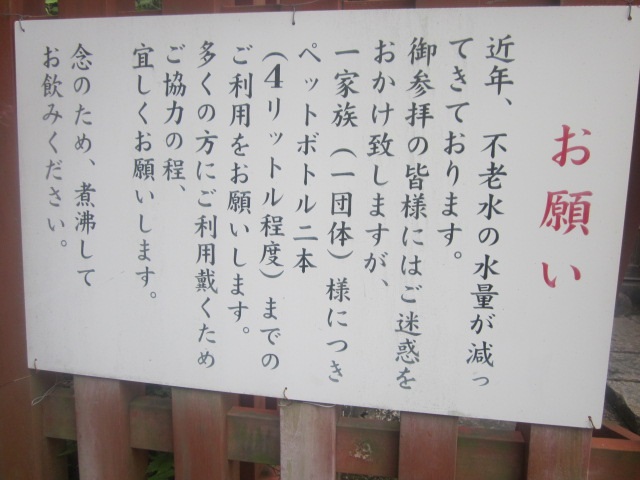 お願い
近年、不老水の水量が減っ
てきております。
御参拝の皆様にはご迷惑を
おかけ致しますが、
一家族（一団体）様につき
ペットボトル二本
（4リットル程度）までの
ご利用をお願いします。
多くの方にご利用戴くため
ご協力の程、
宜しくお願いします。
念のため、煮沸して
お飲みください。